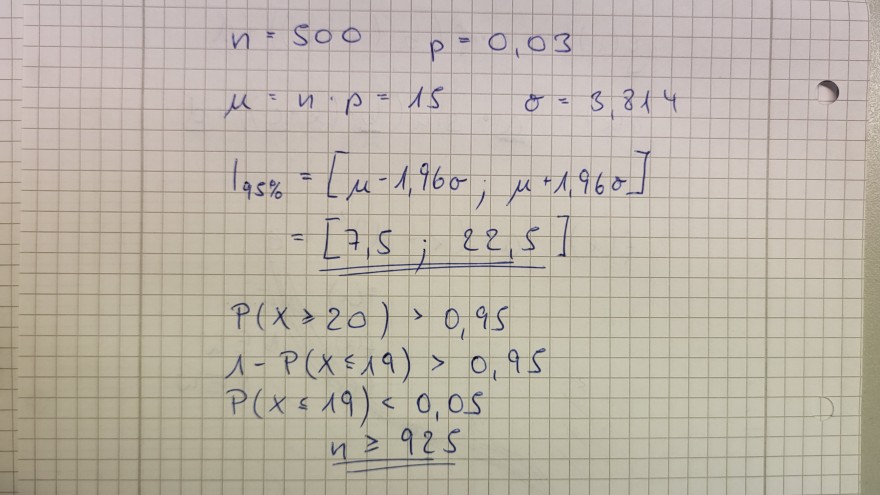 n = 500 p = 0,03
μ = n · p = 15 σ = 3,814
I95% = [μ - 1,96σ ; μ + 1,96σ]
= [7,5 ; 22,5]
P(X ≥ 20) > 0,95
1 - P(X ≤ 19) > 0,95
P(X ≤ 19) < 0,05
n ≥ 925